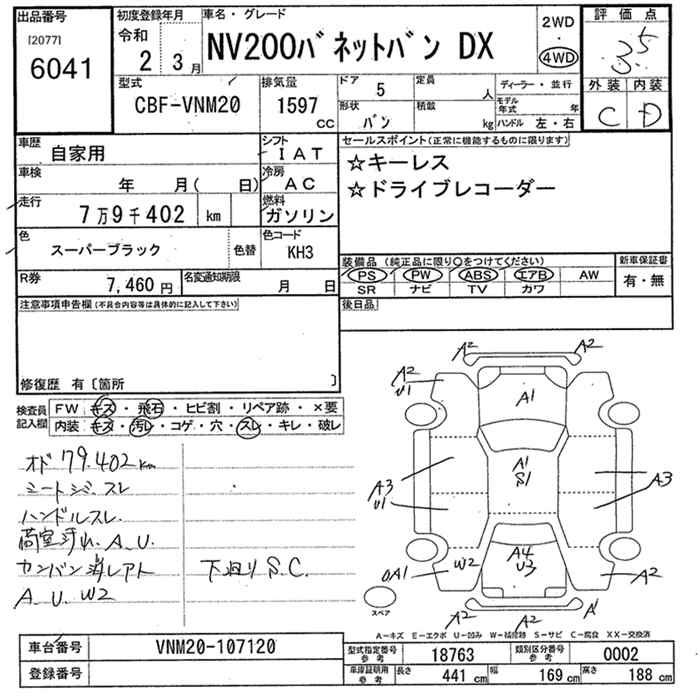 出品番号
[2077]
6041
初度登録年月
令和
2 3月
車名・グレード
NV200バネットバン DX
2WD
・
4WD
評価点
3.5
外装 内装
C D
型式
CBF-VNM20
排気量
1597
cc
ドア 5
定員 人
形状
バン
積載 kg
ディーラー・並行
モデル年式 年
ハンドル 左・右
車歴
自家用
シフト
IAT
車検
年 月( 日)
冷房
AC
走行
7万9千402 km
燃料
ガソリン
色
スーパーブラック
色替
色コード
KH3
R券
7,460円
名変通知期限
月 日
セールスポイント(正常に機能するものに限ります)
☆キーレス
☆ドライブレコーダー
装備品 (純正品に限り○をつけてください)
PS PW ABS エアB AW
SR ナビ TV カワ
新車保証書
有・無
後日品
注意事項申告欄 (不具合内容等は具体的に記入して下さい)
修復歴 有〔箇所 〕
検査員
記入欄
FW キズ・飛石・ヒビ割・リペア跡・×要
内装 キズ・汚レ・コゲ・穴・スレ・キレ・破レ
オド 79.402km
シートシミ スレ
ハンドルスレ
荷室汚れ A.U.
カンバン消しアト
A.U.W2
下廻り S.C.
A2 A2
A2
U1
A1
A1
S1
A3
U1
A3
A4
U3
W2
A1
A2
A2 A2 A1
スペア
A－キズ E－エクボ U－凹み W－補修跡 S－サビ C－腐食 XX－交換済
車台番号
VNM20-107120
登録番号
型式指定番号
参考
18763
類別区分番号
参考
0002
車庫証明用
参考
長さ 441 cm
幅 169 cm
高さ 188 cm